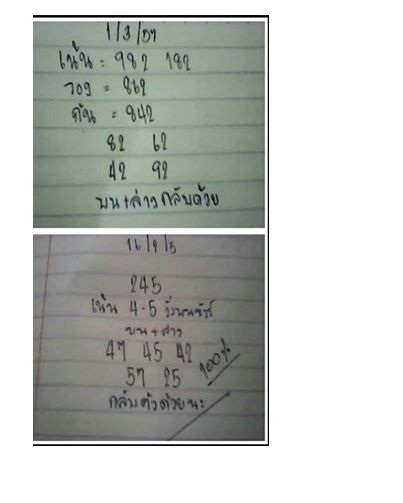 1/3/57
เน้น = 982 182
รอง = 862
กัน = 842
82 62
42 92
บน+ล่างกลับด้วย
16/2/5
245
เน้น 4-5 วิ่งบนชัวร์
บน+ล่าง
47 45 42
57 25 100%
กลับตัวด้วยนะ